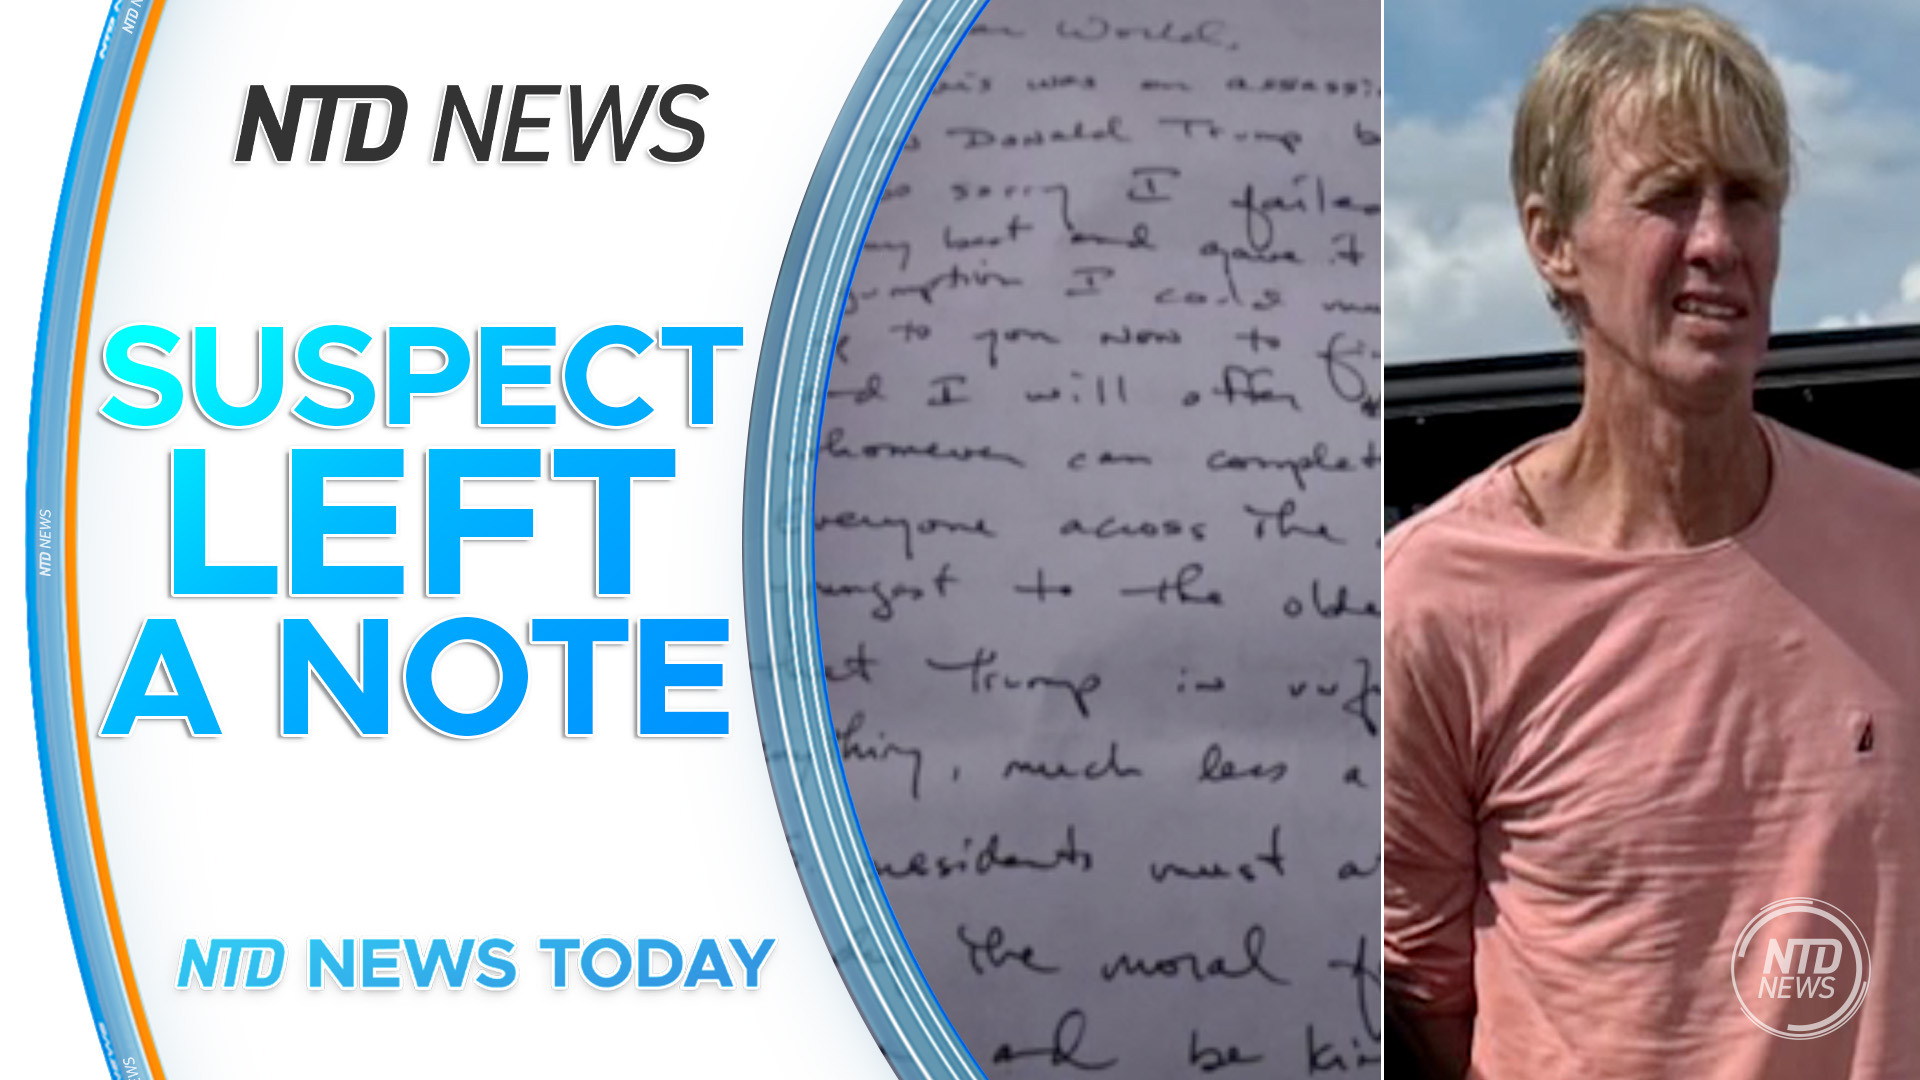 NTD NEWS
SUSPECT
LEFT
A NOTE
NTD NEWS TODAY
NTD NEWS
World,
was an assassi
Donald Trump b
sorry I failed
my best and gave it
I could mu
to you now to fi
I will offer
homever can complet
everyone across the
ungest to the olde
Trump is unf
thing, much less a
residents must a
the moral f
and be kin
NTD
NEWS